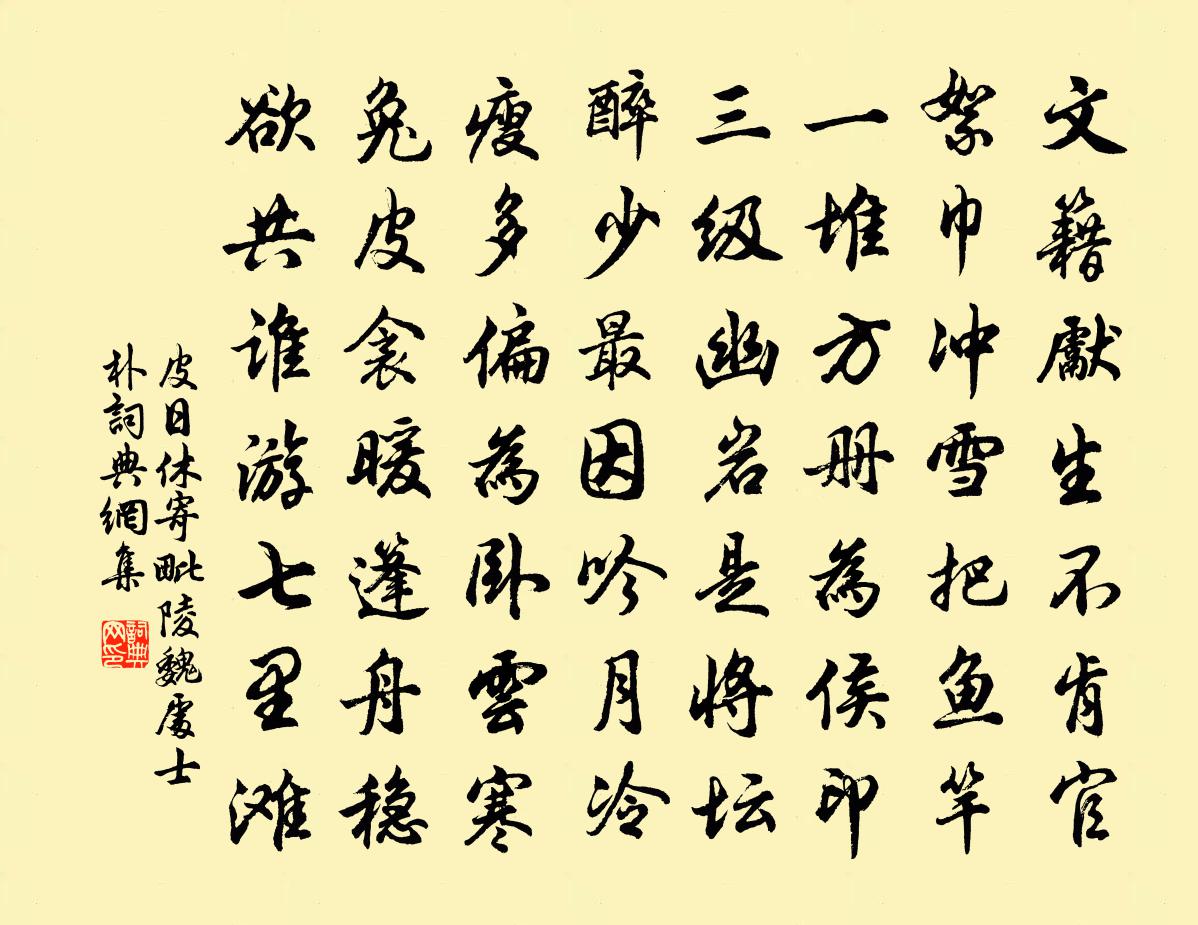 文籍獻生不肯官
絮巾冲雪把鱼竿
一堆方册為侯印
三级幽岩是将坛
醉少最因吟月冷
瘦多偏為卧雲寒
兔皮衾暖蓬舟稳
欲共谁游七里滩
皮日休寄毗陵魏處士
朴詞典網集
詞典
网印